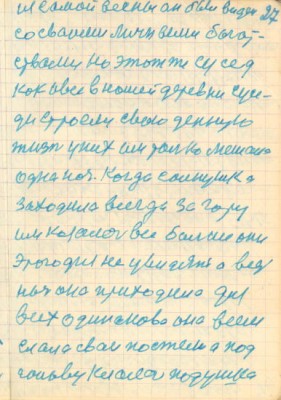 и самой весны он был виден 27
со своими личными богат-
ствами но этот же сусед
как и все в нашей деревни сусе-
ди строели свою денную
жизн у них им только мешала
одна ноч. Когда солнушка
заходила всегда за гору
им казалос все больше они
этого дня не увидять а вед
ноч она приходила для
всех одинакова она всем
слала сваи постели а под
голову клала подушка